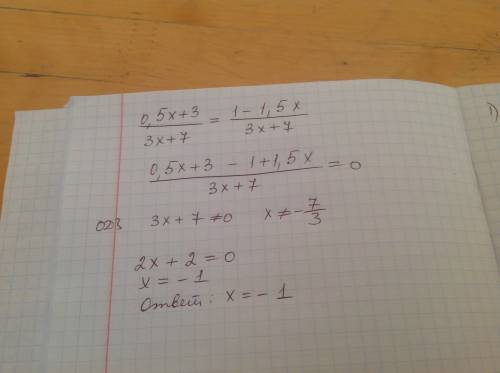 (0,5x+3)/(3x+7) = (1-1,5x)/(3x+7)
(0,5x+3-1+1,5x)/(3x+7) = 0
ОДЗ 3x+7≠0 x≠-7/3
2x+2=0
x=-1
Ответ: x=-1
1)